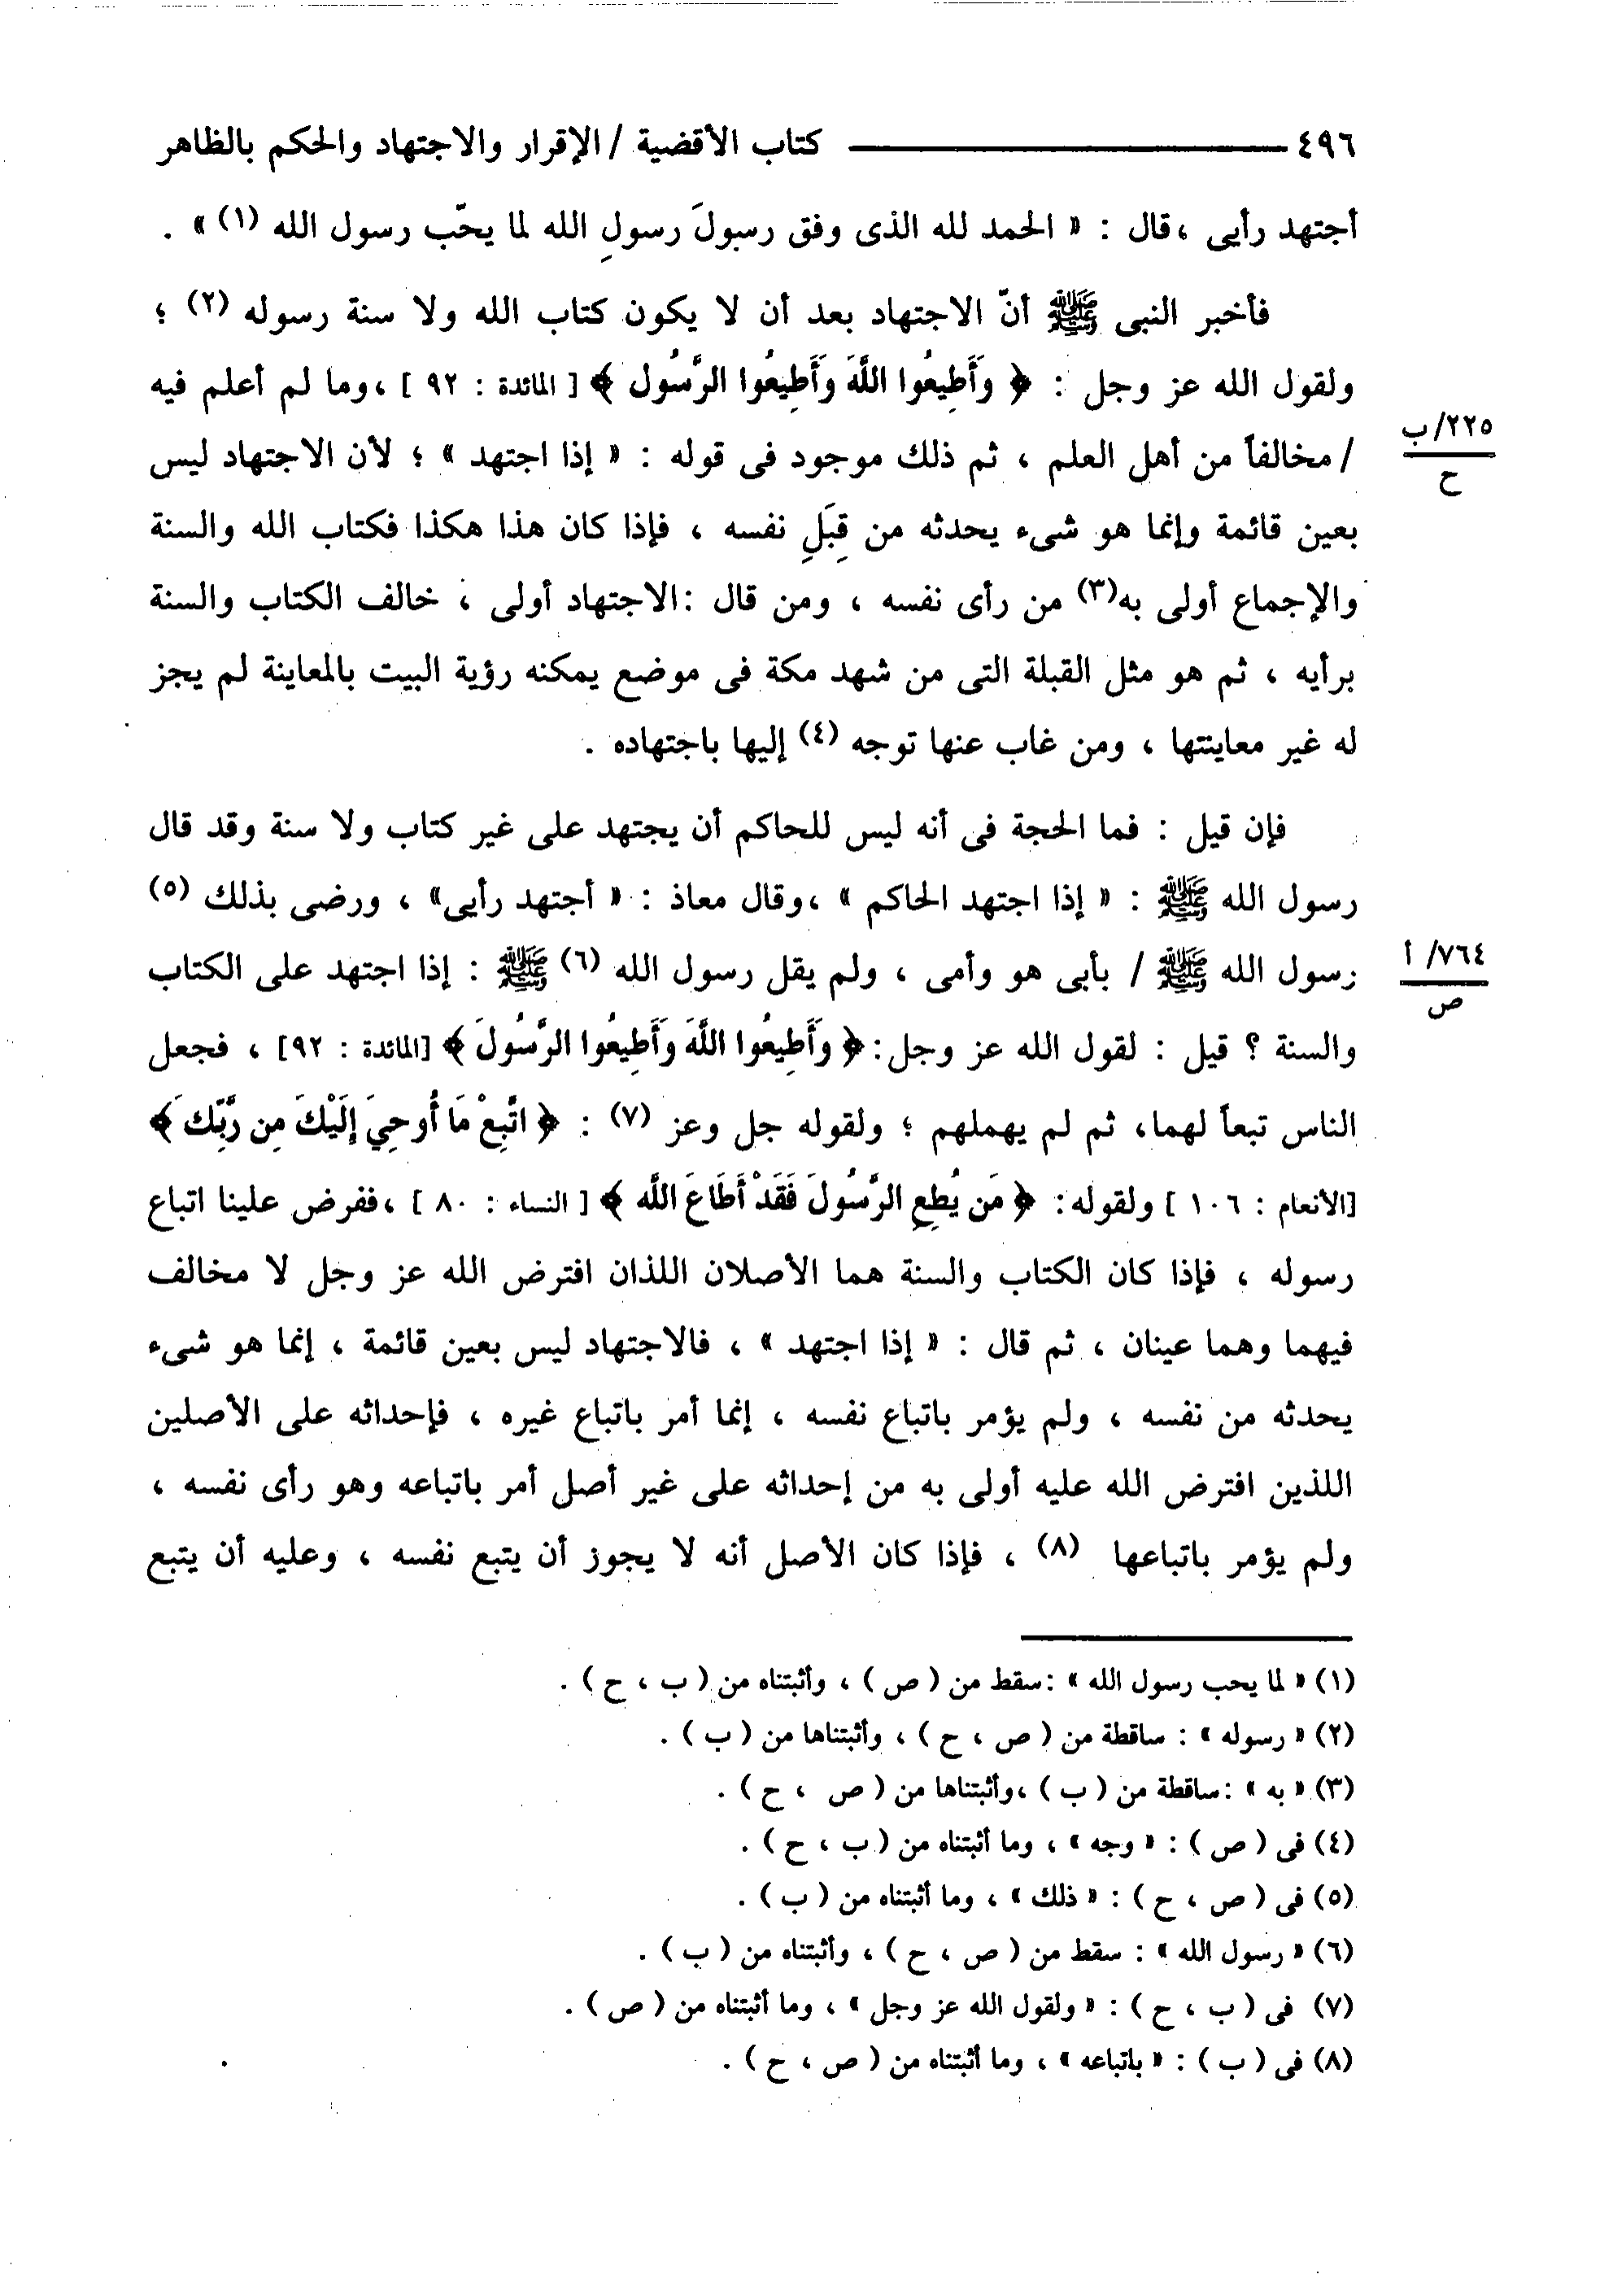 ٤٩٦ ــــــــــــ كتاب الأقضية / الإقرار والاجتهاد والحكم بالظاهر
أجتهد رأيى ،قال : « الحمد لله الذى وفق رسولَ رسولِ الله لما يحّب رسول الله (١) » .
فأخبر النبى ﷺ أنّ الاجتهاد بعد أن لا يكون كتاب الله ولا سنة رسوله (٢) ؛
ولقول الله عز وجل : ﴿ وَأَطِيعُوا اللَّهَ وَأَطِيعُوا الرَّسُول ﴾ [ المائدة : ٩٢ ] ،وما لم أعلم فيه
٢٢٥/ب
/ مخالفاً من أهل العلم ، ثم ذلك موجود فى قوله : « إذا اجتهد » ؛ لأن الاجتهاد ليس
ح
بعين قائمة وإنما هو شىء يحدثه من قِبَلِ نفسه ، فإذا كان هذا هكذا فكتاب الله والسنة
والإجماع أولى به(٣) من رأى نفسه ، ومن قال :الاجتهاد أولى ، خالف الكتاب والسنة
برأيه ، ثم هو مثل القبلة التى من شهد مكة فى موضع يمكنه رؤية البيت بالمعاينة لم يجز
له غير معاينتها ، ومن غاب عنها توجه (٤) إليها باجتهاده .
فإن قيل : فما الحجة فى أنه ليس للحاكم أن يجتهد على غير كتاب ولا سنة وقد قال
رسول الله ﷺ : « إذا اجتهد الحاكم » ،وقال معاذ : « أجتهد رأيى» ، ورضى بذلك (٥)
٧٦٤/ أ
رسول الله ﷺ / بأبى هو وأمى ، ولم يقل رسول الله (٦) ﷺ : إذا اجتهد على الكتاب
ص
والسنة ؟ قيل : لقول الله عز وجل: ﴿ وَأَطِيعُوا اللَّهَ وَأَطِيعُوا الرَّسُولَ ﴾ [المائدة : ٩٢] ، فجعل
الناس تبعاً لهما، ثم لم يهملهم ؛ ولقوله جل وعز (٧) : ﴿ اتَّبِعْ مَا أُوحِيَ إِلَيْكَ مِن رَّبِّكَ ﴾
[الأنعام : ١٠٦ ] ولقوله: ﴿ مَن يُطِعِ الرَّسُولَ فَقَدْ أَطَاعَ اللَّه ﴾ [ النساء : ٨٠ ] ،ففرض علينا اتباع
رسوله ، فإذا كان الكتاب والسنة هما الأصلان اللذان افترض الله عز وجل لا مخالف
فيهما وهما عينان ، ثم قال : « إذا اجتهد » ، فالاجتهاد ليس بعين قائمة ، إنما هو شىء
يحدثه من نفسه ، ولم يؤمر باتباع نفسه ، إنما أمر باتباع غيره ، فإحداثه على الأصلين
اللذين افترض الله عليه أولى به من إحداثه على غير أصل أمر باتباعه وهو رأى نفسه ،
ولم يؤمر باتباعها (٨) ، فإذا كان الأصل أنه لا يجوز أن يتبع نفسه ، وعليه أن يتبع
(١) « لما يحب رسول الله » :سقط من ( ص ) ، وأثبتناه من ( ب ، ح ) .
(٢) « رسوله » : ساقطة من ( ص ، ح ) ، وأثبتناها من ( ب ) .
(٣) « به » :ساقطة من ( ب ) ،وأثبتناها من ( ص ، ح ) .
(٤) فى ( ص ) : « وجه » ، وما أثبتناه من ( ب ، ح ) .
(٥) فى ( ص ، ح ) : « ذلك » ، وما أثبتناه من ( ب ) .
(٦) « رسول الله » : سقط من ( ص ، ح ) ، وأثبتناه من ( ب ) .
(٧) فى ( ب ، ح ) : « ولقول الله عز وجل » ، وما أثبتناه من ( ص ) .
(٨) فى ( ب ) : « باتباعه » ، وما أثبتناه من ( ص ، ح ) .